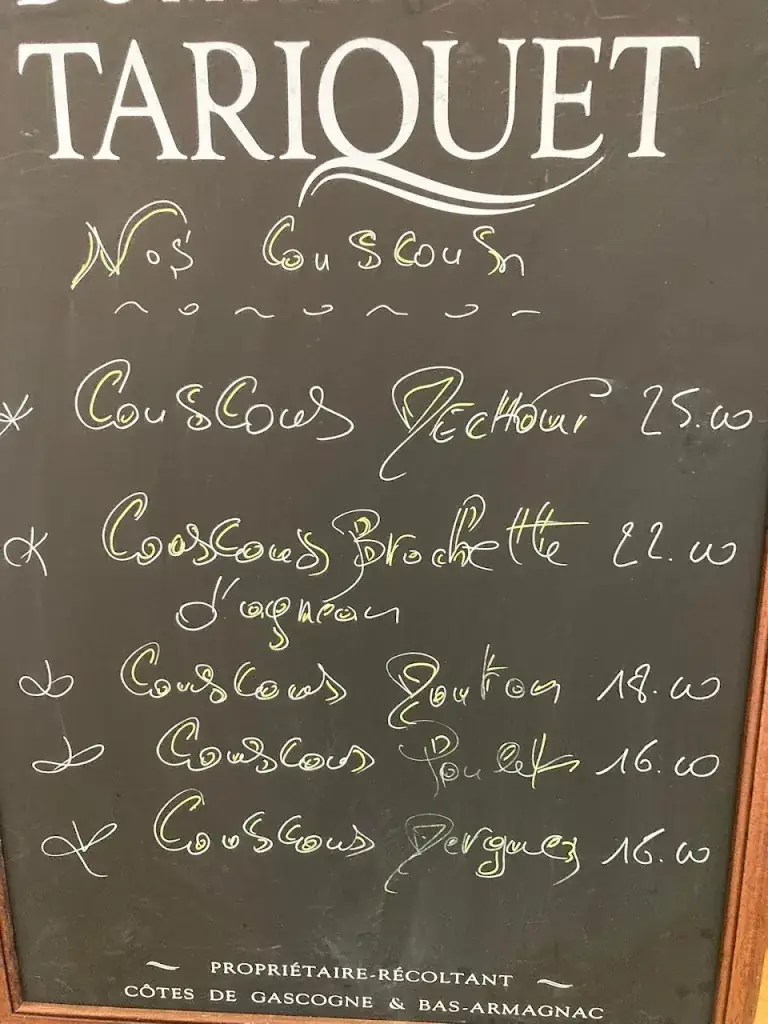 TARIQUET
Nos Couscous
* Couscous Méchoui 25.00
* Couscous Brochette 22.00
d'agneau
* Couscous Mouton 18.00
* Couscous Poulet 16.00
* Couscous Merguez 16.00
~ PROPRIÉTAIRE-RÉCOLTANT ~
CÔTES DE GASCOGNE & BAS-ARMAGNAC